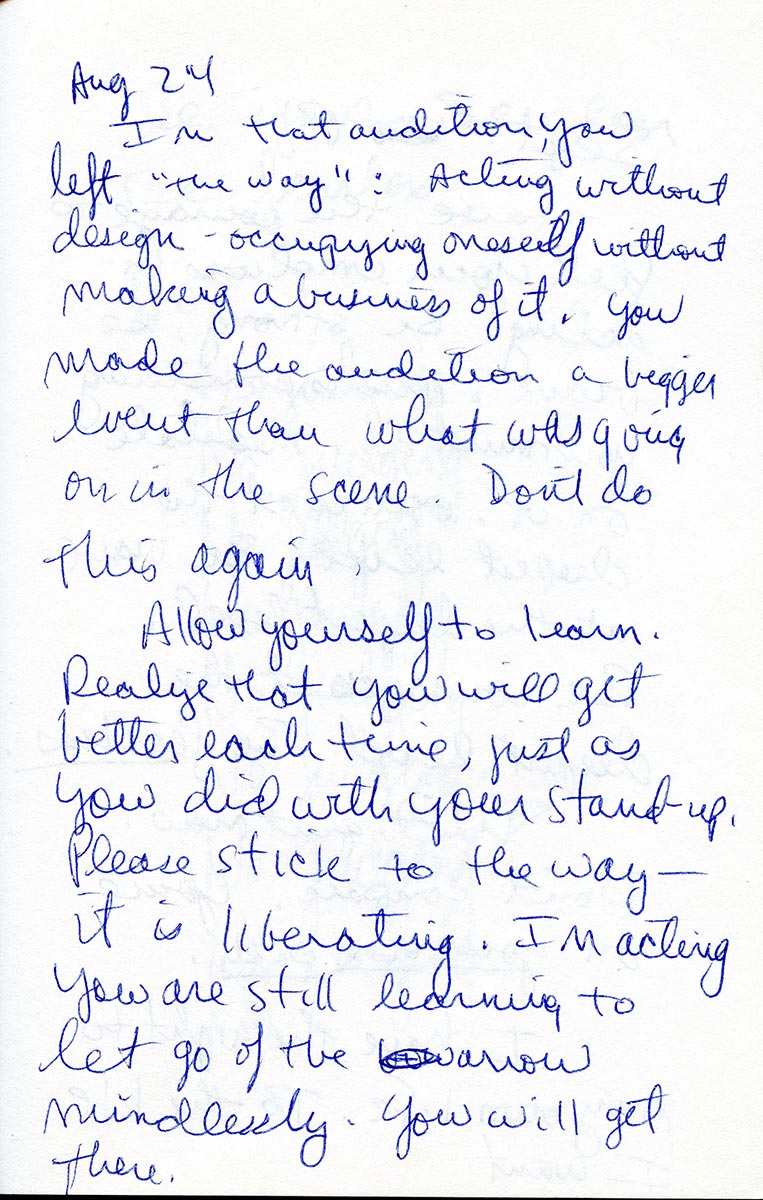 Aug 24
In that audition, you
left "the way": Acting without
design - occupying oneself without
making a business of it. You
made the audition a bigger
event than what was going
on in the scene. Don't do
this again.
Allow yourself to learn.
Realize that you will get
better each time, just as
you did with your stand-up.
Please stick to the way—
it is liberating. In acting
you are still learning to
let go of the arrow
mindlessly. You will get
there.